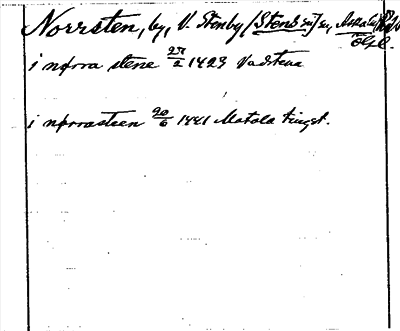 Norrsten, by, V. Stenby [Stens sn] sn, Aska hd
Ögl.
i nørra stene 27/2 1423 Vadstena
i nørrasteen 20/6 1441 Motala tingst.